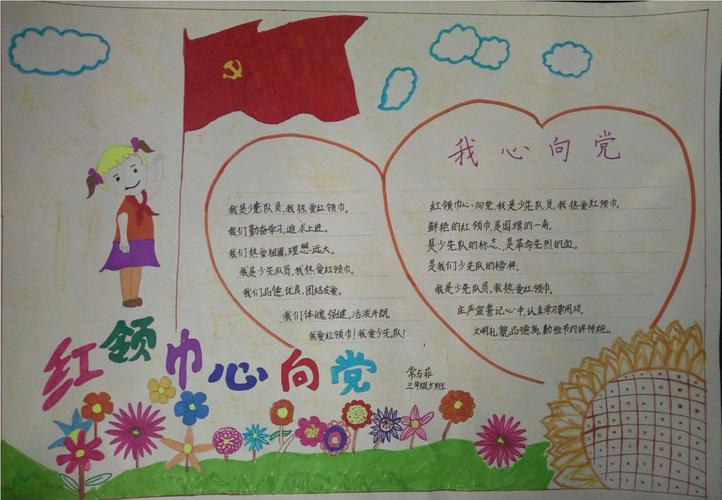 我是少先队员,我热爱红领巾。
我们勤奋学习,追求上进。
我们热爱祖国,理想远大。
我是少先队员,我热爱红领巾。
我们品德优良,团结友爱。
我们体魄强健,活泼开朗。
我爱红领巾!我爱少先队!
我心向党
红领巾心向党,我是少先队员,我热爱红领巾。
鲜艳的红领巾,是国旗的一角,
是少先队的标志,是革命先烈的血。
是我们少先队的榜样。
我是少先队员,我热爱红领巾。
庄严宣誓记心中,认真学习要用功,
文明礼貌品德高,勤俭节约讲传统。
常与菲
三年级5班
红领巾心向党